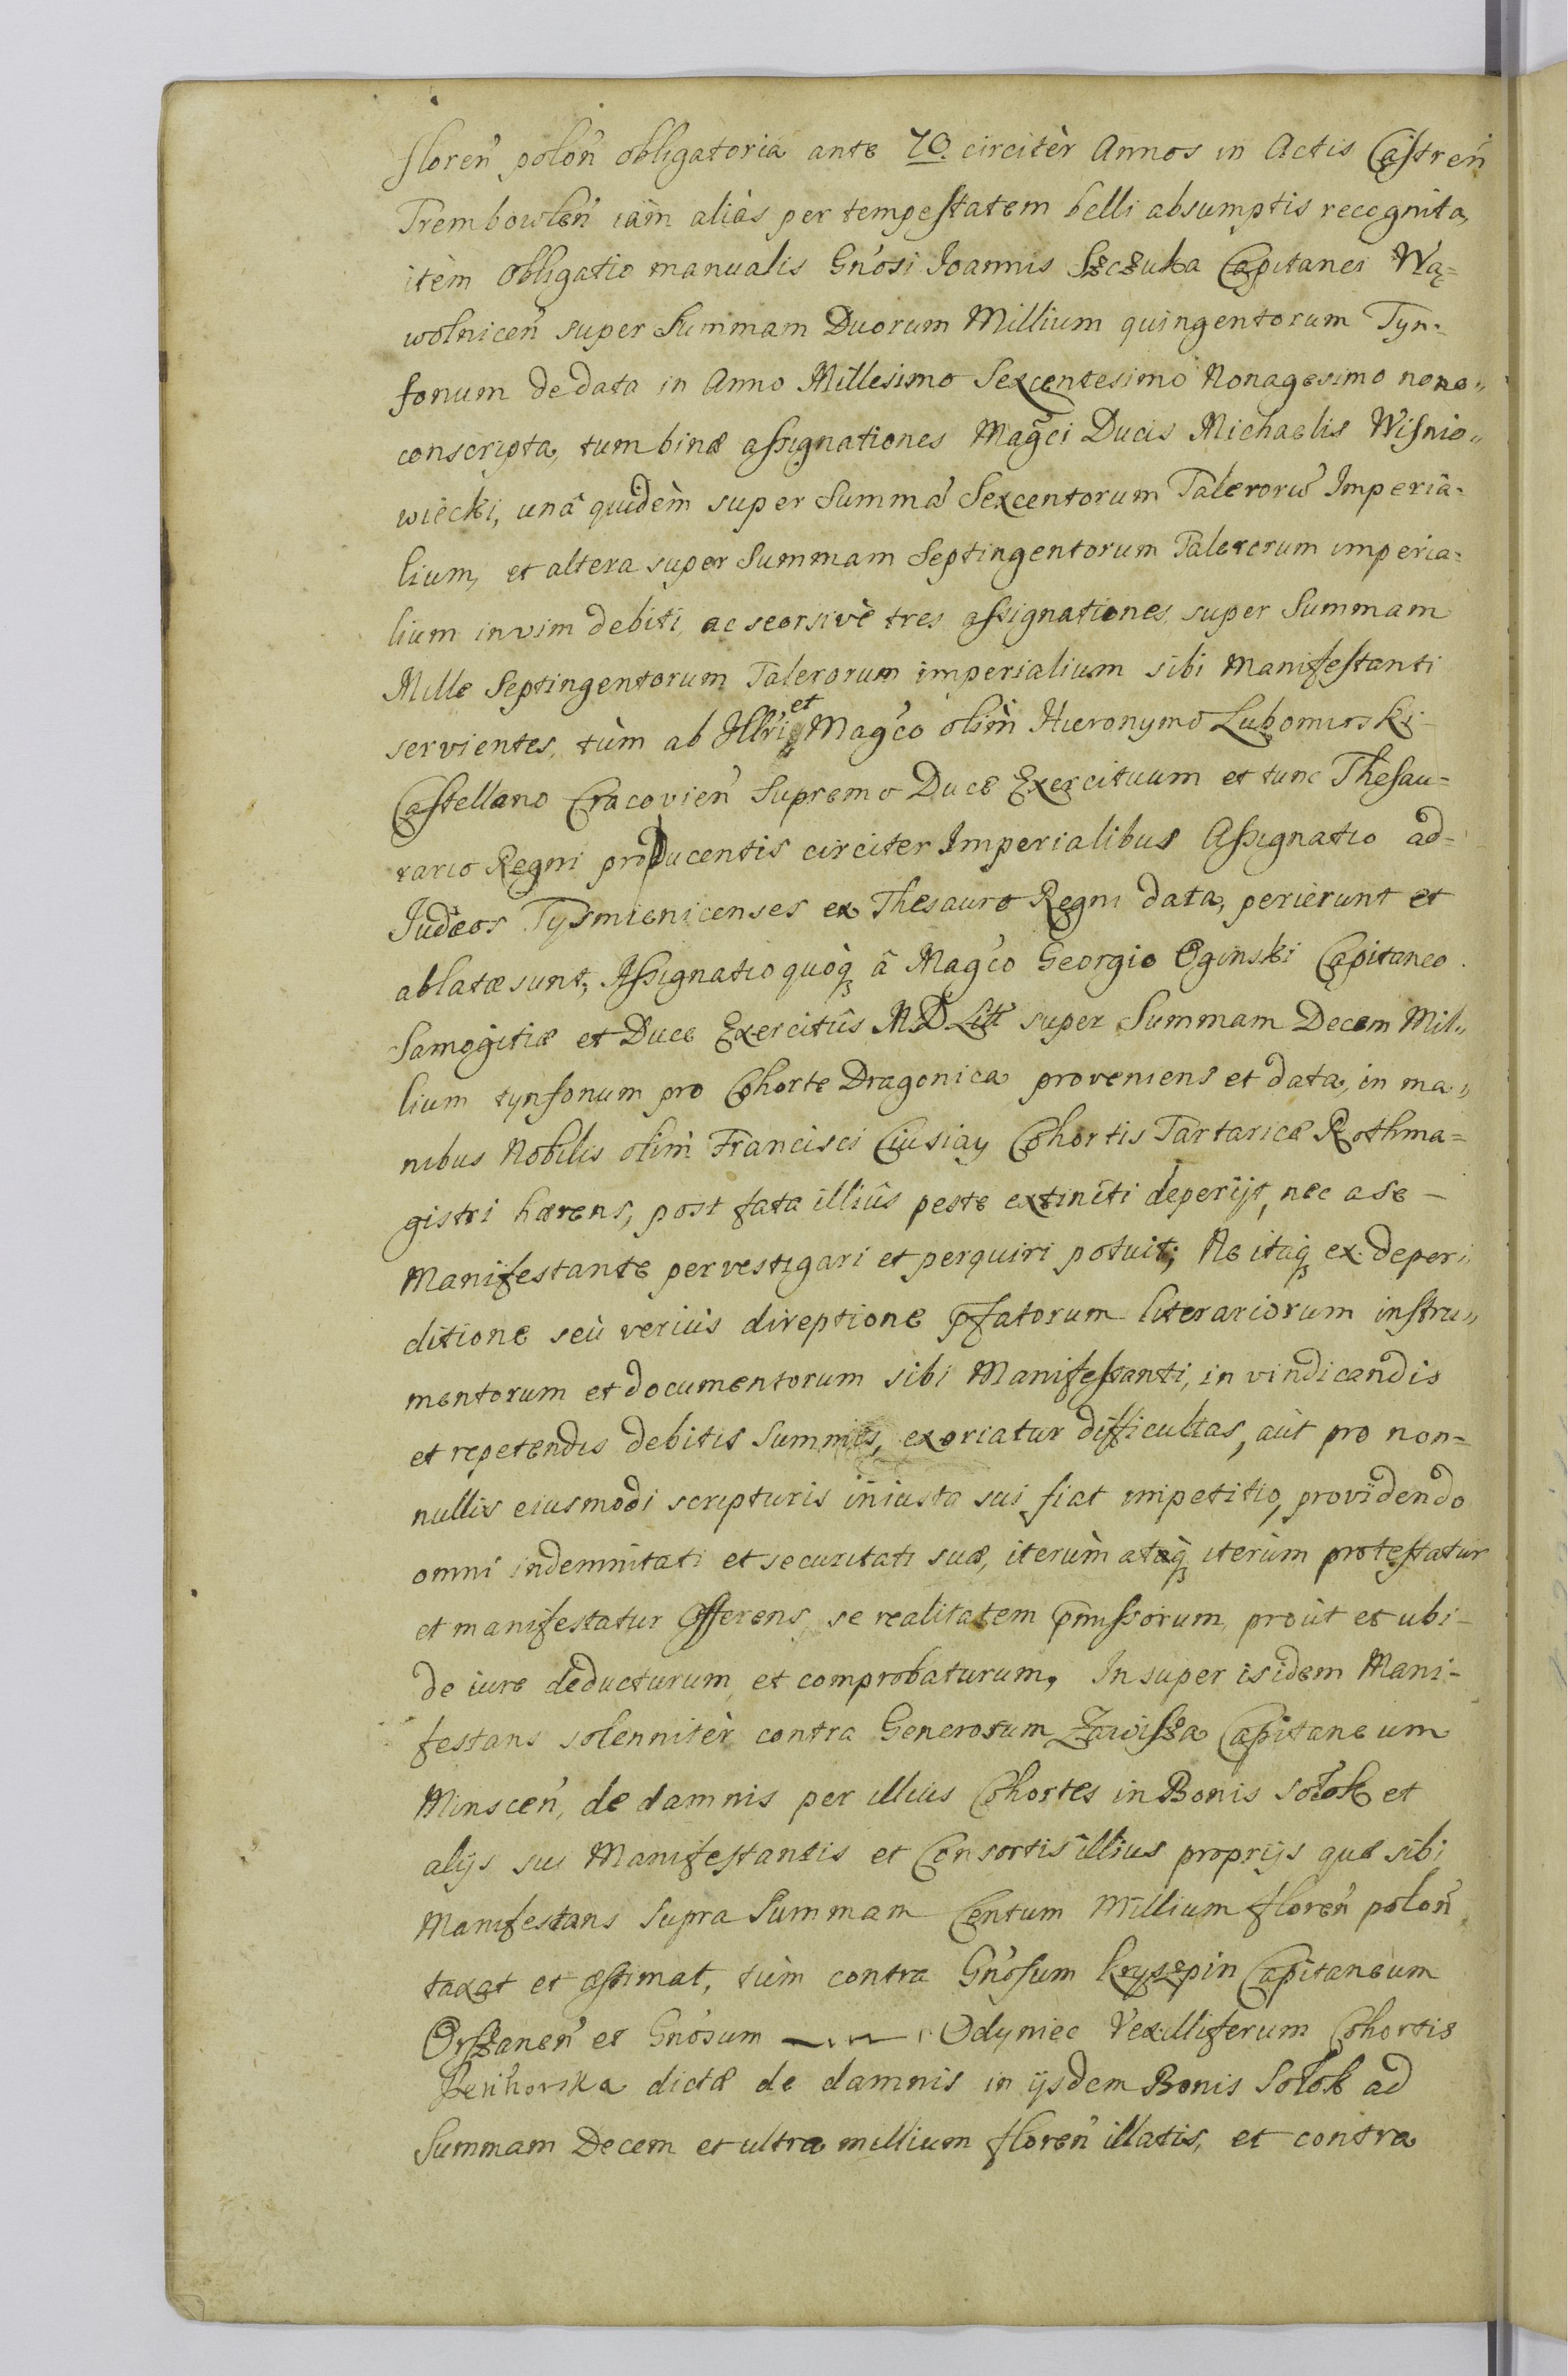 floren̄ polon̄ obligatoria ante 70. circitèr Annos in Actis Castren̄
Trembowlen̄ iam̀ aliàs per tempestatem belli absumptis recognita,
itèm Obligatio manualis Gn̄osi Joannis Szczuka Capitanei Wą=
wolnicen̄ super Summam Duorum Millium quingentorum Tyn=
fonum de data in Anno Millesimo Sexcentesimo Nonagesimo nono
conscripta, tum binæ assignationes Mag̃ci Ducis Michaelis Wisnio„
wiecki, unâ quidèm super Summā Sexcentorum Talerorū Imperia=
lium, et altera super Summam Septingentorum Talerorum imperia=
lium in vim debiti, ac seorsivè tres assignationes, super Summam
Mille Septingentorum Talerorum imperialium sibi Manifestanti
servientes, tùm ab Illri et Mag̃co olim̀ Hieronymo Lubomirski
Castellano Cracovien̄ Supremo Duce Exercituum et tunc Thesau=
rario Regni proDucentis circiter Imperialibus Assignatio ad=
Judæos Tysmienicenses ex Thesauro Regni data, perierunt et
ablatæ sunt, Assignatio quòq̨ â Mag̃co Georgio Oginski Capitaneo
Samogitiæ et Duce Exercitûs M.D. Litt super Summam Decem Mil„
lium tynfonum pro Cohorte Dragonica proveniens et data, in ma„
nibus Nobilis olim̀ Francisci Ciusiay Cohortis Tartaricæ Rothma=
gistri hærens, post fata illiûs peste extincti deperijt, nec a se
Manifestante pervestigari et perquiri potuit; Ne itaq̨ ex deper„
ditione seù veriùs direptione p̄fatorum literariorum instru„
mentorum et documentorum sibi Manifestanti, in vindicandis
et repetendis debitis Summis, exoriatur difficultas, aùt pro non=
nullis eiusmodi scripturis iniusta sui fiat impetitio, providendo
omni indemnitati et securitati suæ, iterùm atq̨ iterùm protestatur
et manifestatur Offerens, se realitatem p̄missorum, proùt et ubi
de iure deducturum, et comprobaturum, Insuper isidem Mani=
festans solennitèr contra Generosum Zawisza Capitaneum
Minscen̄, de damnis per illius Cohortes in Bonis Sołok et
alijs sui Manifestantis et Consortis illius proprijs quæ sibi
Manifestans Supra Summam Centum Millium floren̄ polon̄
taxat et æstimat, tùm contra Gn̄osum Kryszpin Capitaneum
Orszanen̄ et Gn̄osum Odyniec Vexilliferum Cohortis
Petihorska dictæ de damnis in ijsdem Bonis Sołok ad
Summam Decem et ultra millium floren̄ illatis, et contra